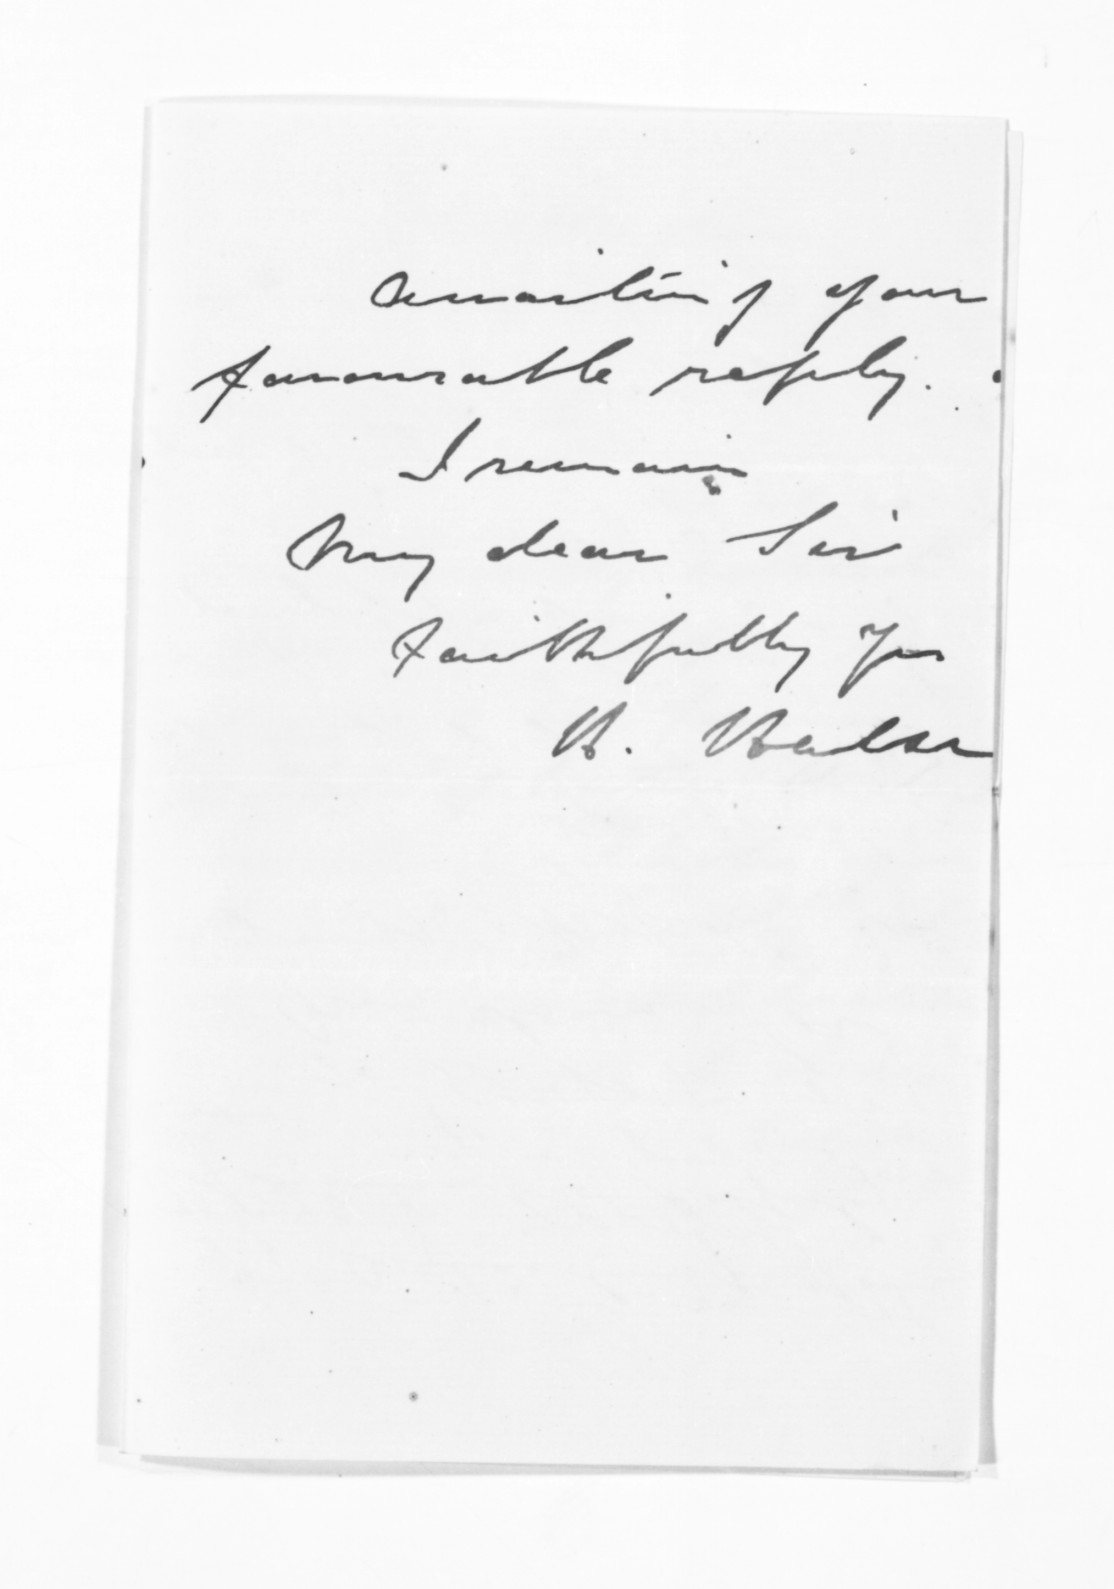 Awaiting your
favourable reply.
I remain
My dear Sir
faithfully Yrs
H.